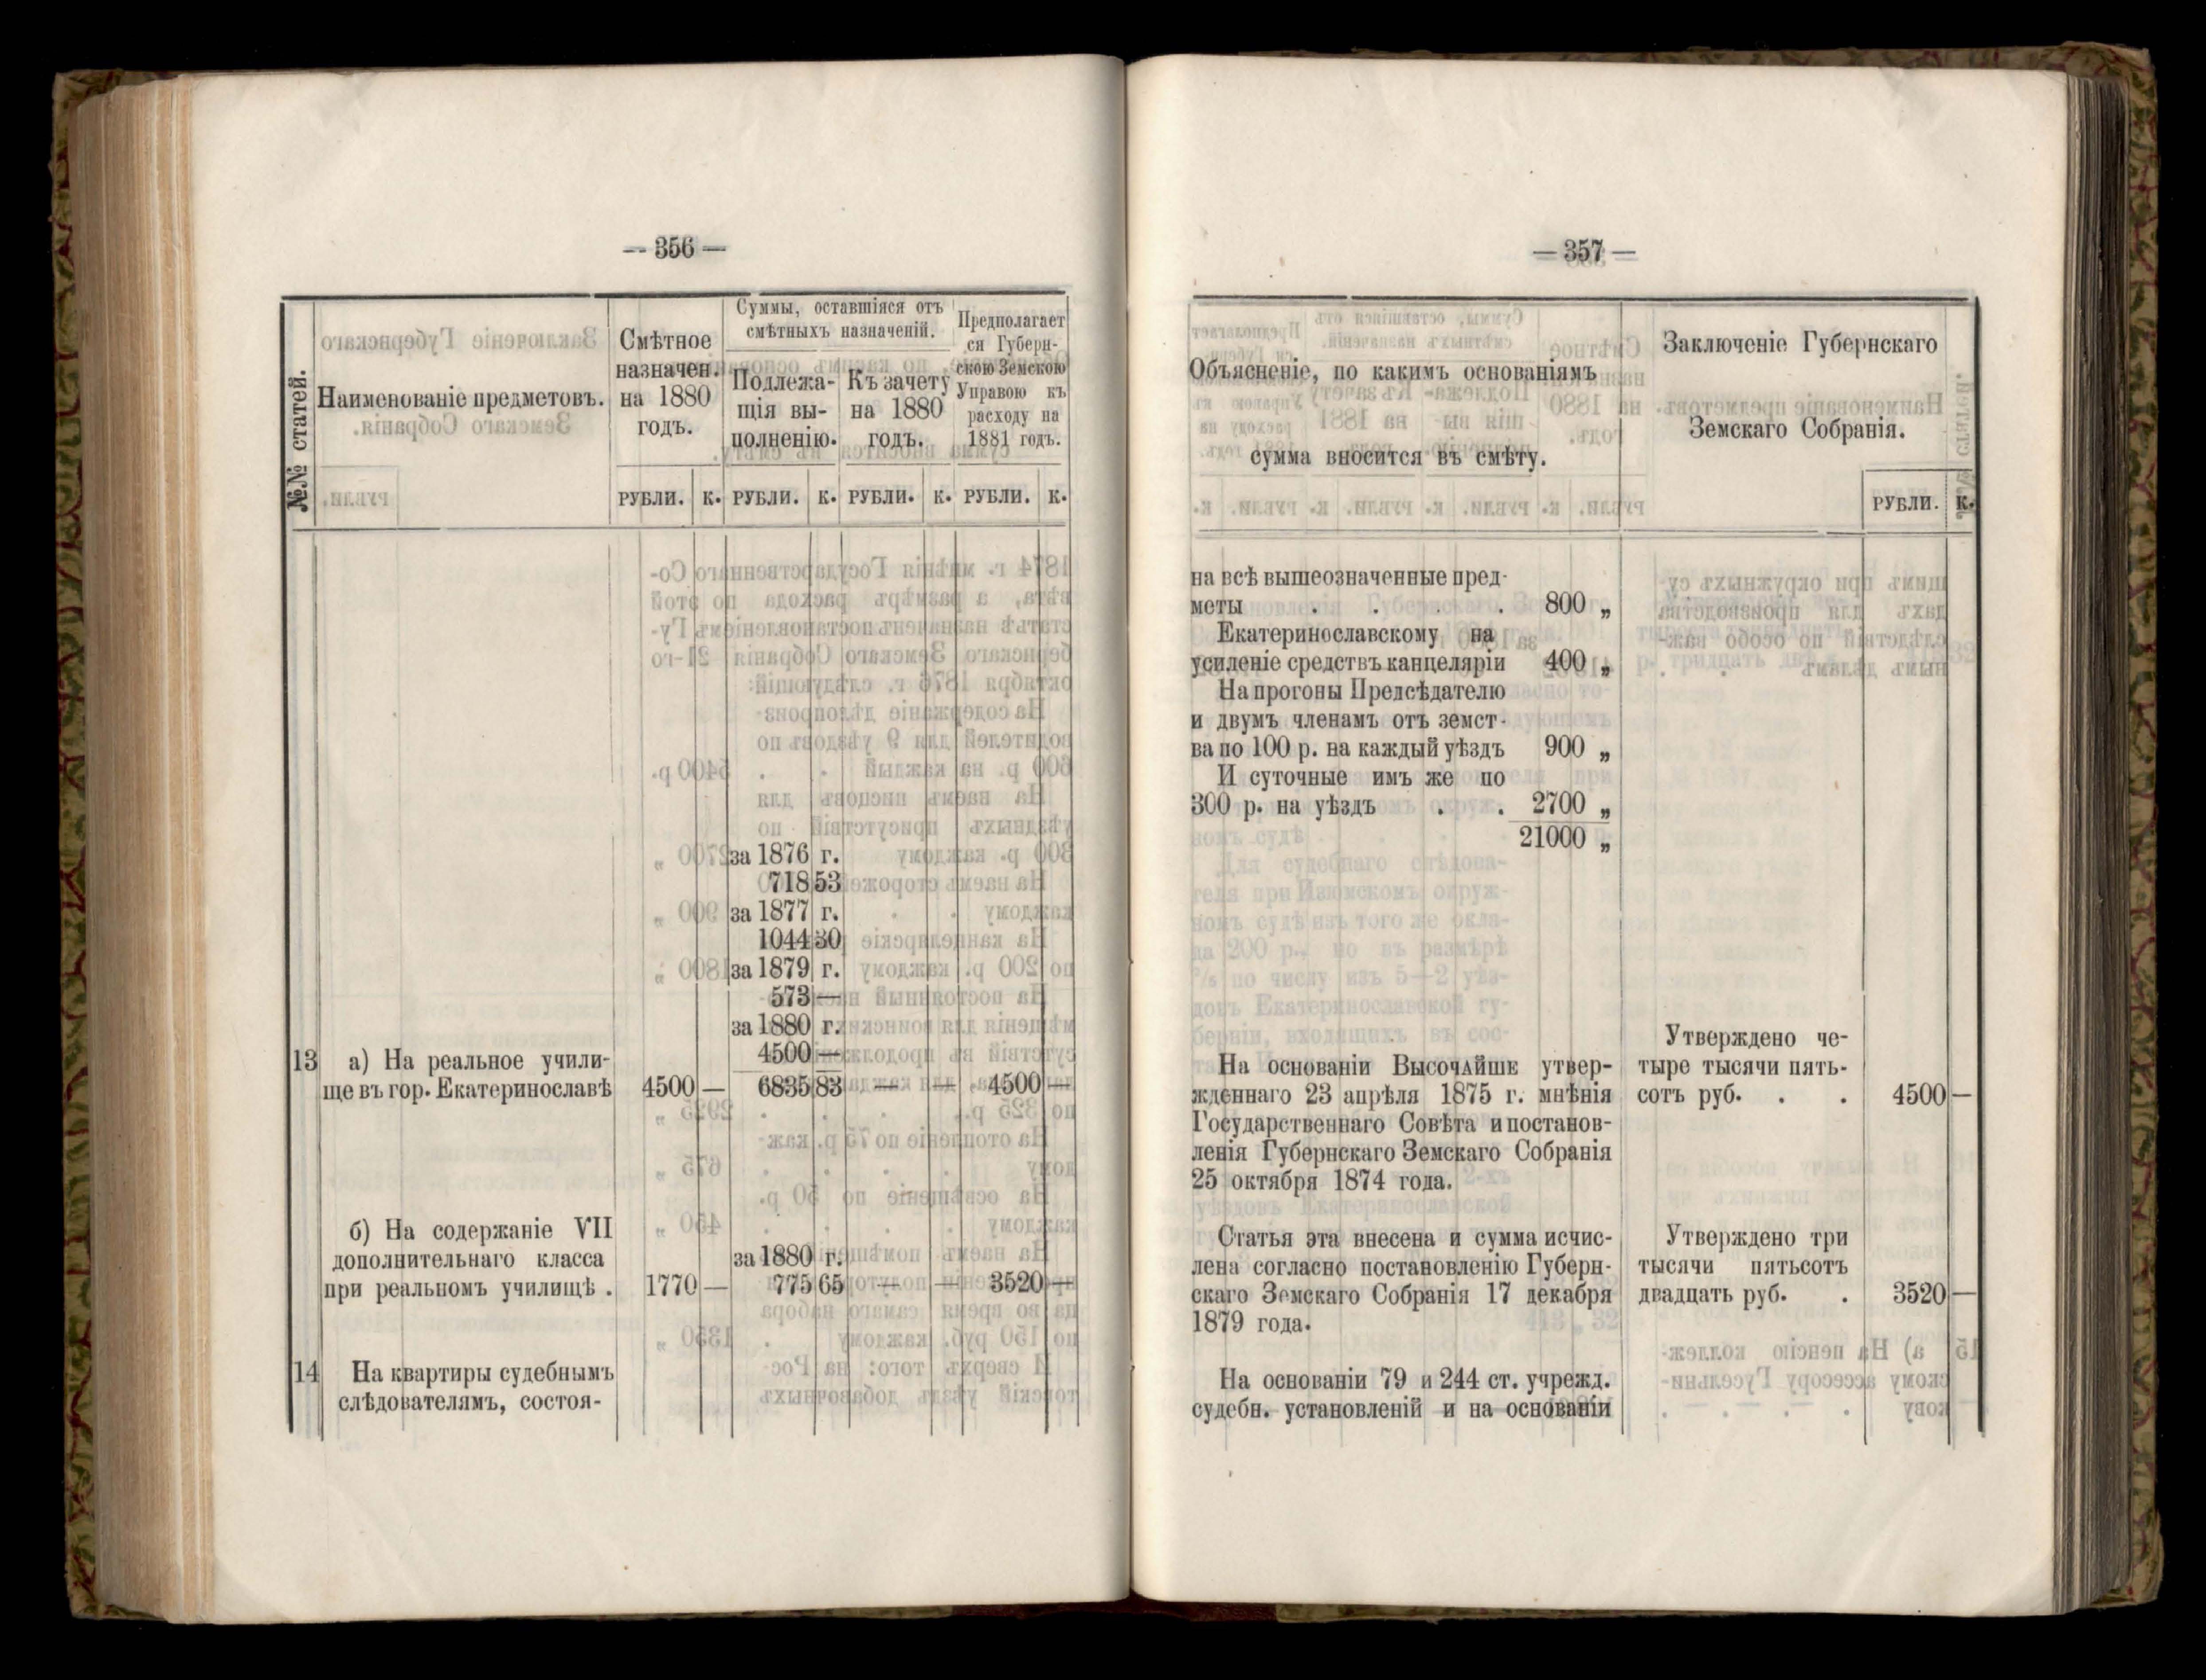 — 356 —
№№ статей.
Наименованіе предметовъ.
Смѣтное
назначен.
на 1880
годъ.
Суммы, оставшіяся отъ
смѣтныхъ назначеній.
Подлежа-
щія вы-
полненію.
Къ зачету
на 1880
годъ.
Предполагает
ся Губерн-
скою Земскою
Управою къ
расходу на
1881 годъ.
РУБЛИ. К. РУБЛИ. К. РУБЛИ. К. РУБЛИ. К.
за 1876 г.
718 53
за 1877 г.
1044 30
за 1879 г.
573 —
за 1880 г.
4500 —
13 а) На реальное учили-
ще въ гор. Екатеринославѣ 4500 — 6835 83 — — 4500 —
б) На содержаніе VII
дополнительнаго класса
за 1880 г.
при реальномъ училищѣ . 1770 — 775 65 — — 3520 —
14 На квартиры судебнымъ
слѣдователямъ, состоя-
— 357 —
Объясненіе, по какимъ основаніямъ
сумма вносится въ смѣту.
Заключеніе Губернскаго
Земскаго Собранія.
РУБЛИ. К.
на всѣ вышеозначенные пред-
меты . . . . 800 „
Екатеринославскому на
усиленіе средствъ канцеляріи 400 „
На прогоны Предсѣдателю
и двумъ членамъ отъ земст-
ва по 100 р. на каждый уѣздъ 900 „
И суточные имъ же по
300 р. на уѣздъ . . 2700 „
21000 „
На основаніи Высочайше утвер-
жденнаго 23 апрѣля 1875 г. мнѣнія
Государственнаго Совѣта и постанов-
ленія Губернскаго Земскаго Собранія
25 октября 1874 года.
Утверждено че-
тыре тысячи пять-
сотъ руб. . . 4500 —
Статья эта внесена и сумма исчис-
лена согласно постановленію Губерн-
скаго Земскаго Собранія 17 декабря
1879 года.
Утверждено три
тысячи пятьсотъ
двадцать руб. . 3520 —
На основаніи 79 и 244 ст. учрежд.
судебн. установленій и на основаніи